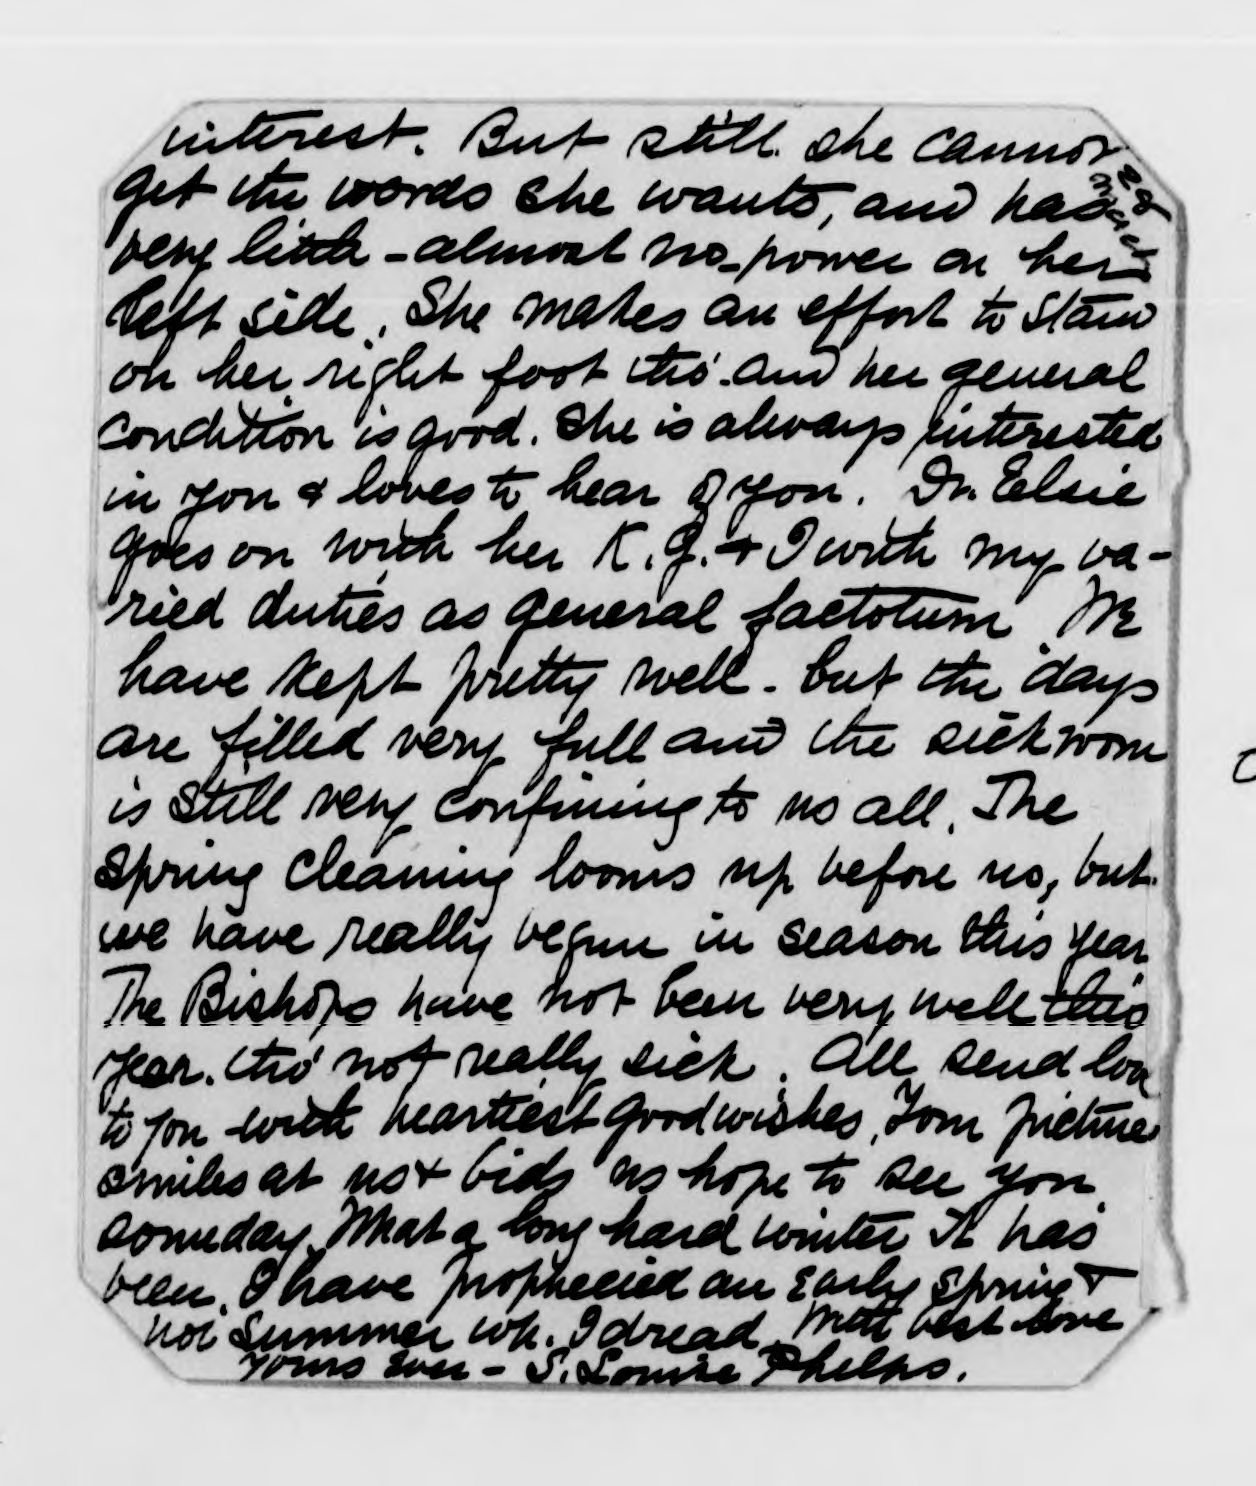 interest. But still she cannot
get the words she wants, and has
very little - almost no - power on her
left side. She makes an effort to stand
on her right foot tho'. and her general
condition is good. She is always interested
in you & loves to hear of you. Dr. Elsie
goes on with her K.G. & I with my va-
ried duties as general factotum. We
have kept pretty well - but the days
are filled very full and the sick room
is still very confining to us all. The
Spring cleaning looms up before us, but
we have really begun in season this year
The Bishops have not been very well this
year. tho' not really sick. All send love
to you with heartiest good wishes, Your picture
smiles at us & bids us hope to see you
someday. What a long hard winter it has
been. I have prophecied an early Spring &
hot Summer wh. I dread. With best love
Yours ever - S. Louise Phelps.